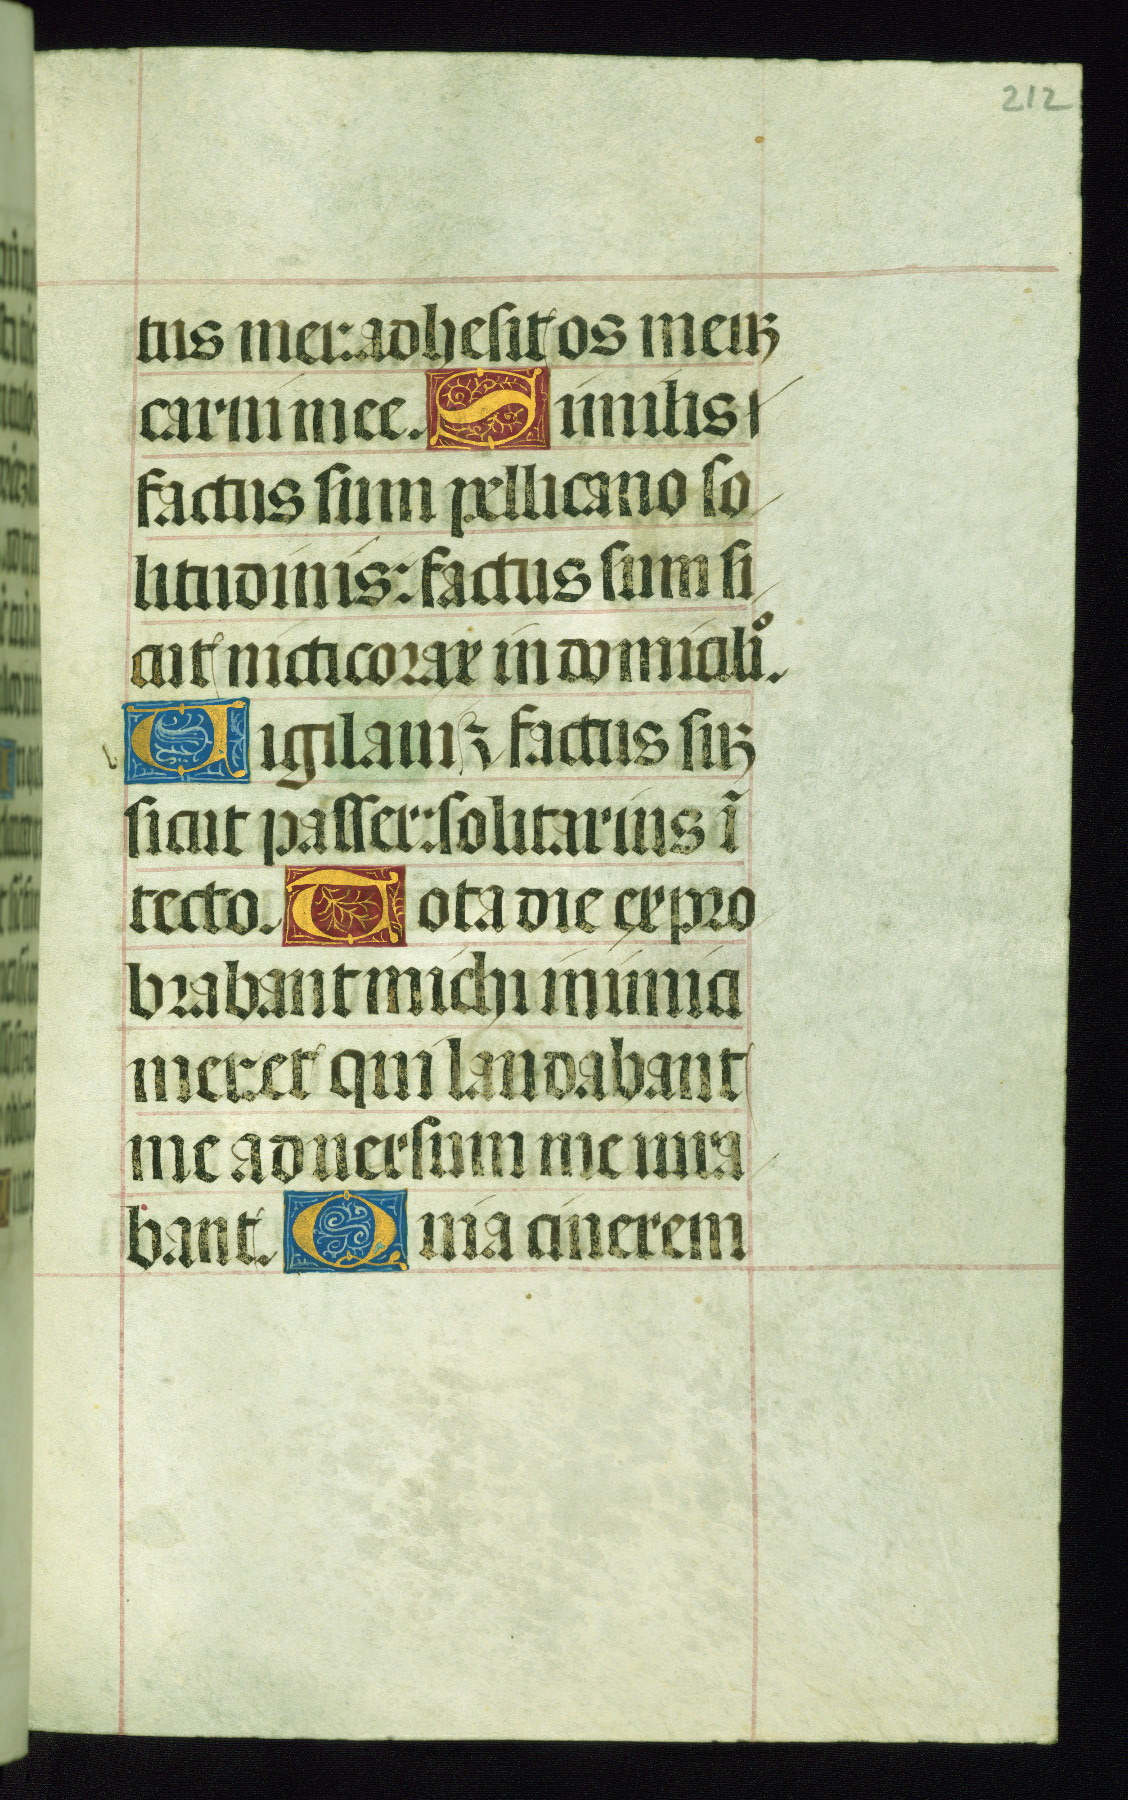 212
tus mei: adhesit os meuʒ
carni mee. Similis
factus sum pellicano so
litudinis: factus sum si
cut nicticorax in domicilio.
Vigilaui ⁊ factus suʒ
sicut passer: solitarius ī
tecto. Tota die expro
brabant michi inimici
mei: et qui laudabant
me aduersum me iura
bant. Quia cinerem